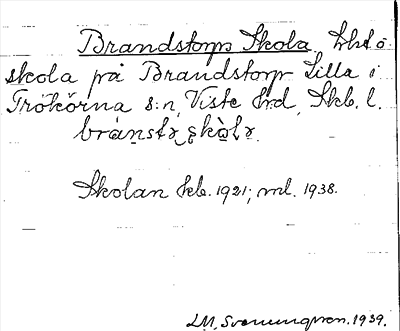 Brandstorps Skola,
skola på Brandstorp Lilla i
Trökörna s:n, Viste hrd, Skb. l.
Skolan tkb. 1921; ml. 1938.
L.M. Svenungsson. 1939.